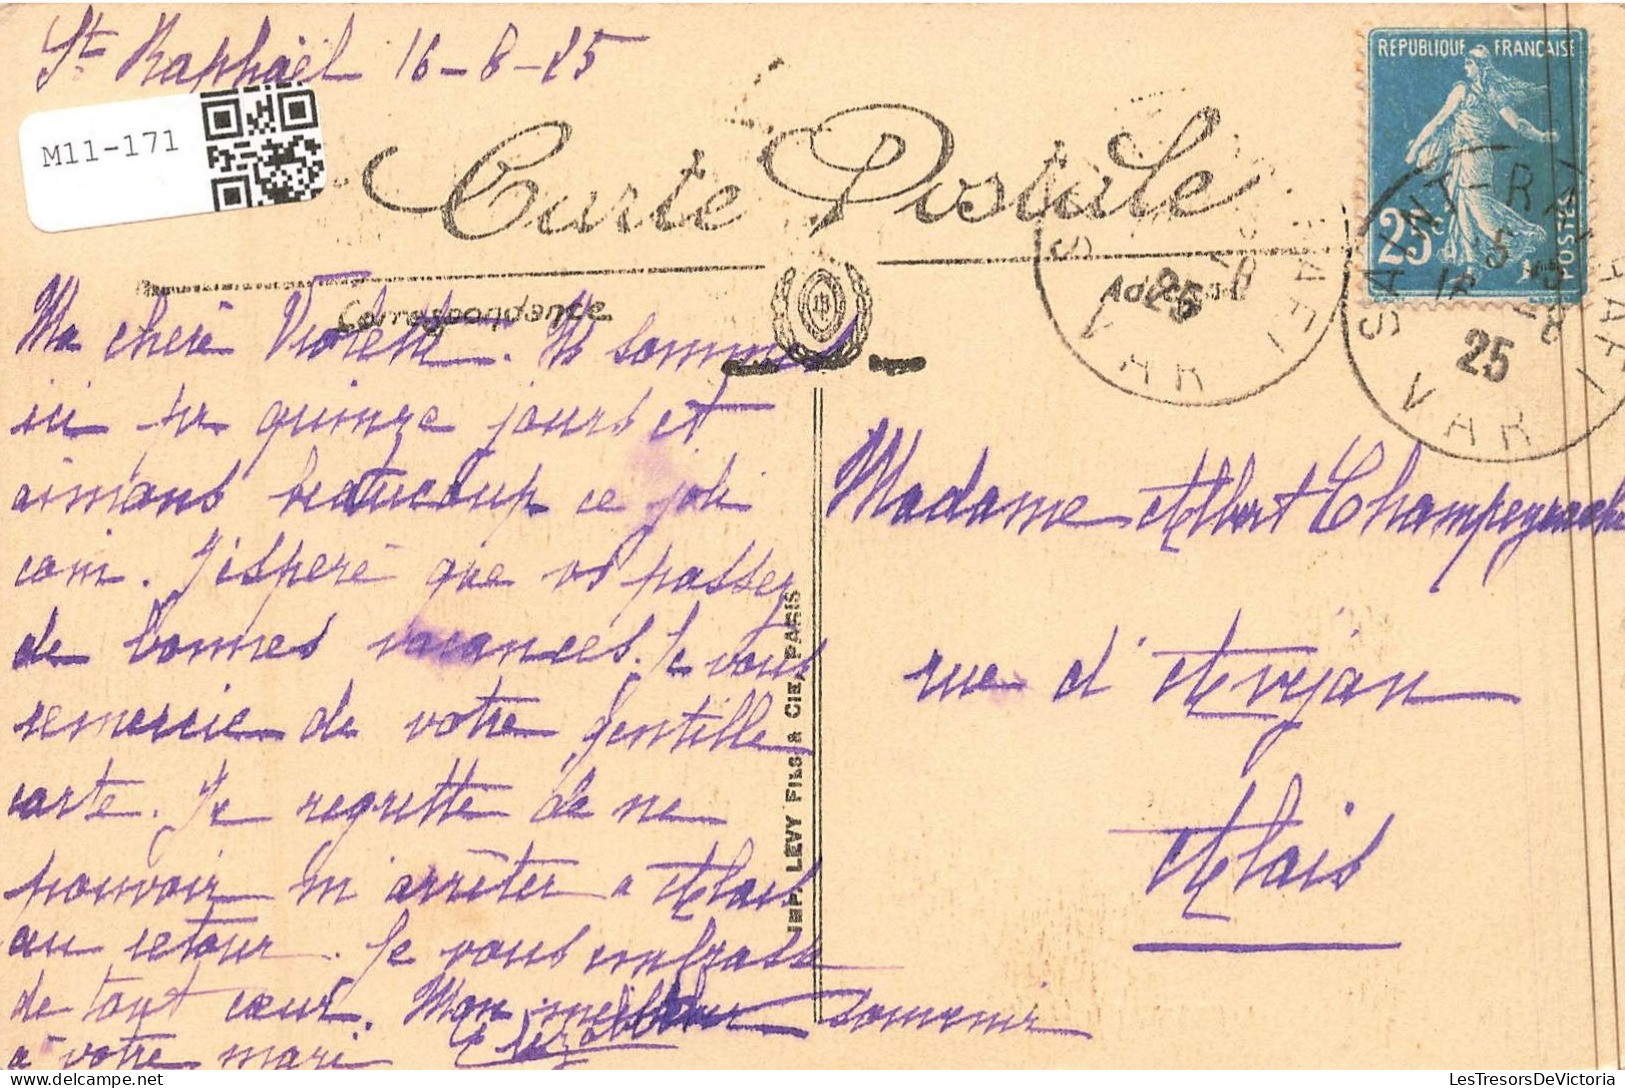 St Raphaël 16-8-25
M11-171
Carte Postale
REPUBLIQUE FRANÇAISE
25
POSTES
SAINT-RAPHAEL
16 - 8
25
VAR
Correspondance
Adresse
Ma chère Violette. Ns sommes
ici pr quinze jours et
aimons beaucoup ce joli
coin. J'espère que vs passez
de bonnes vacances. Je vous
remercie de votre gentille
carte. Je regrette de ne
pouvoir m'arrêter a Alais
au retour. Je vous embrasse
de tout cœur. Mon meilleur souvenir
à votre mari Elizabeth
IMP. LEVY FILS & CIE, PARIS
Madame Albert Champeyrache
rue d'Avéjan
Alais
LesTresorsDeVictoria